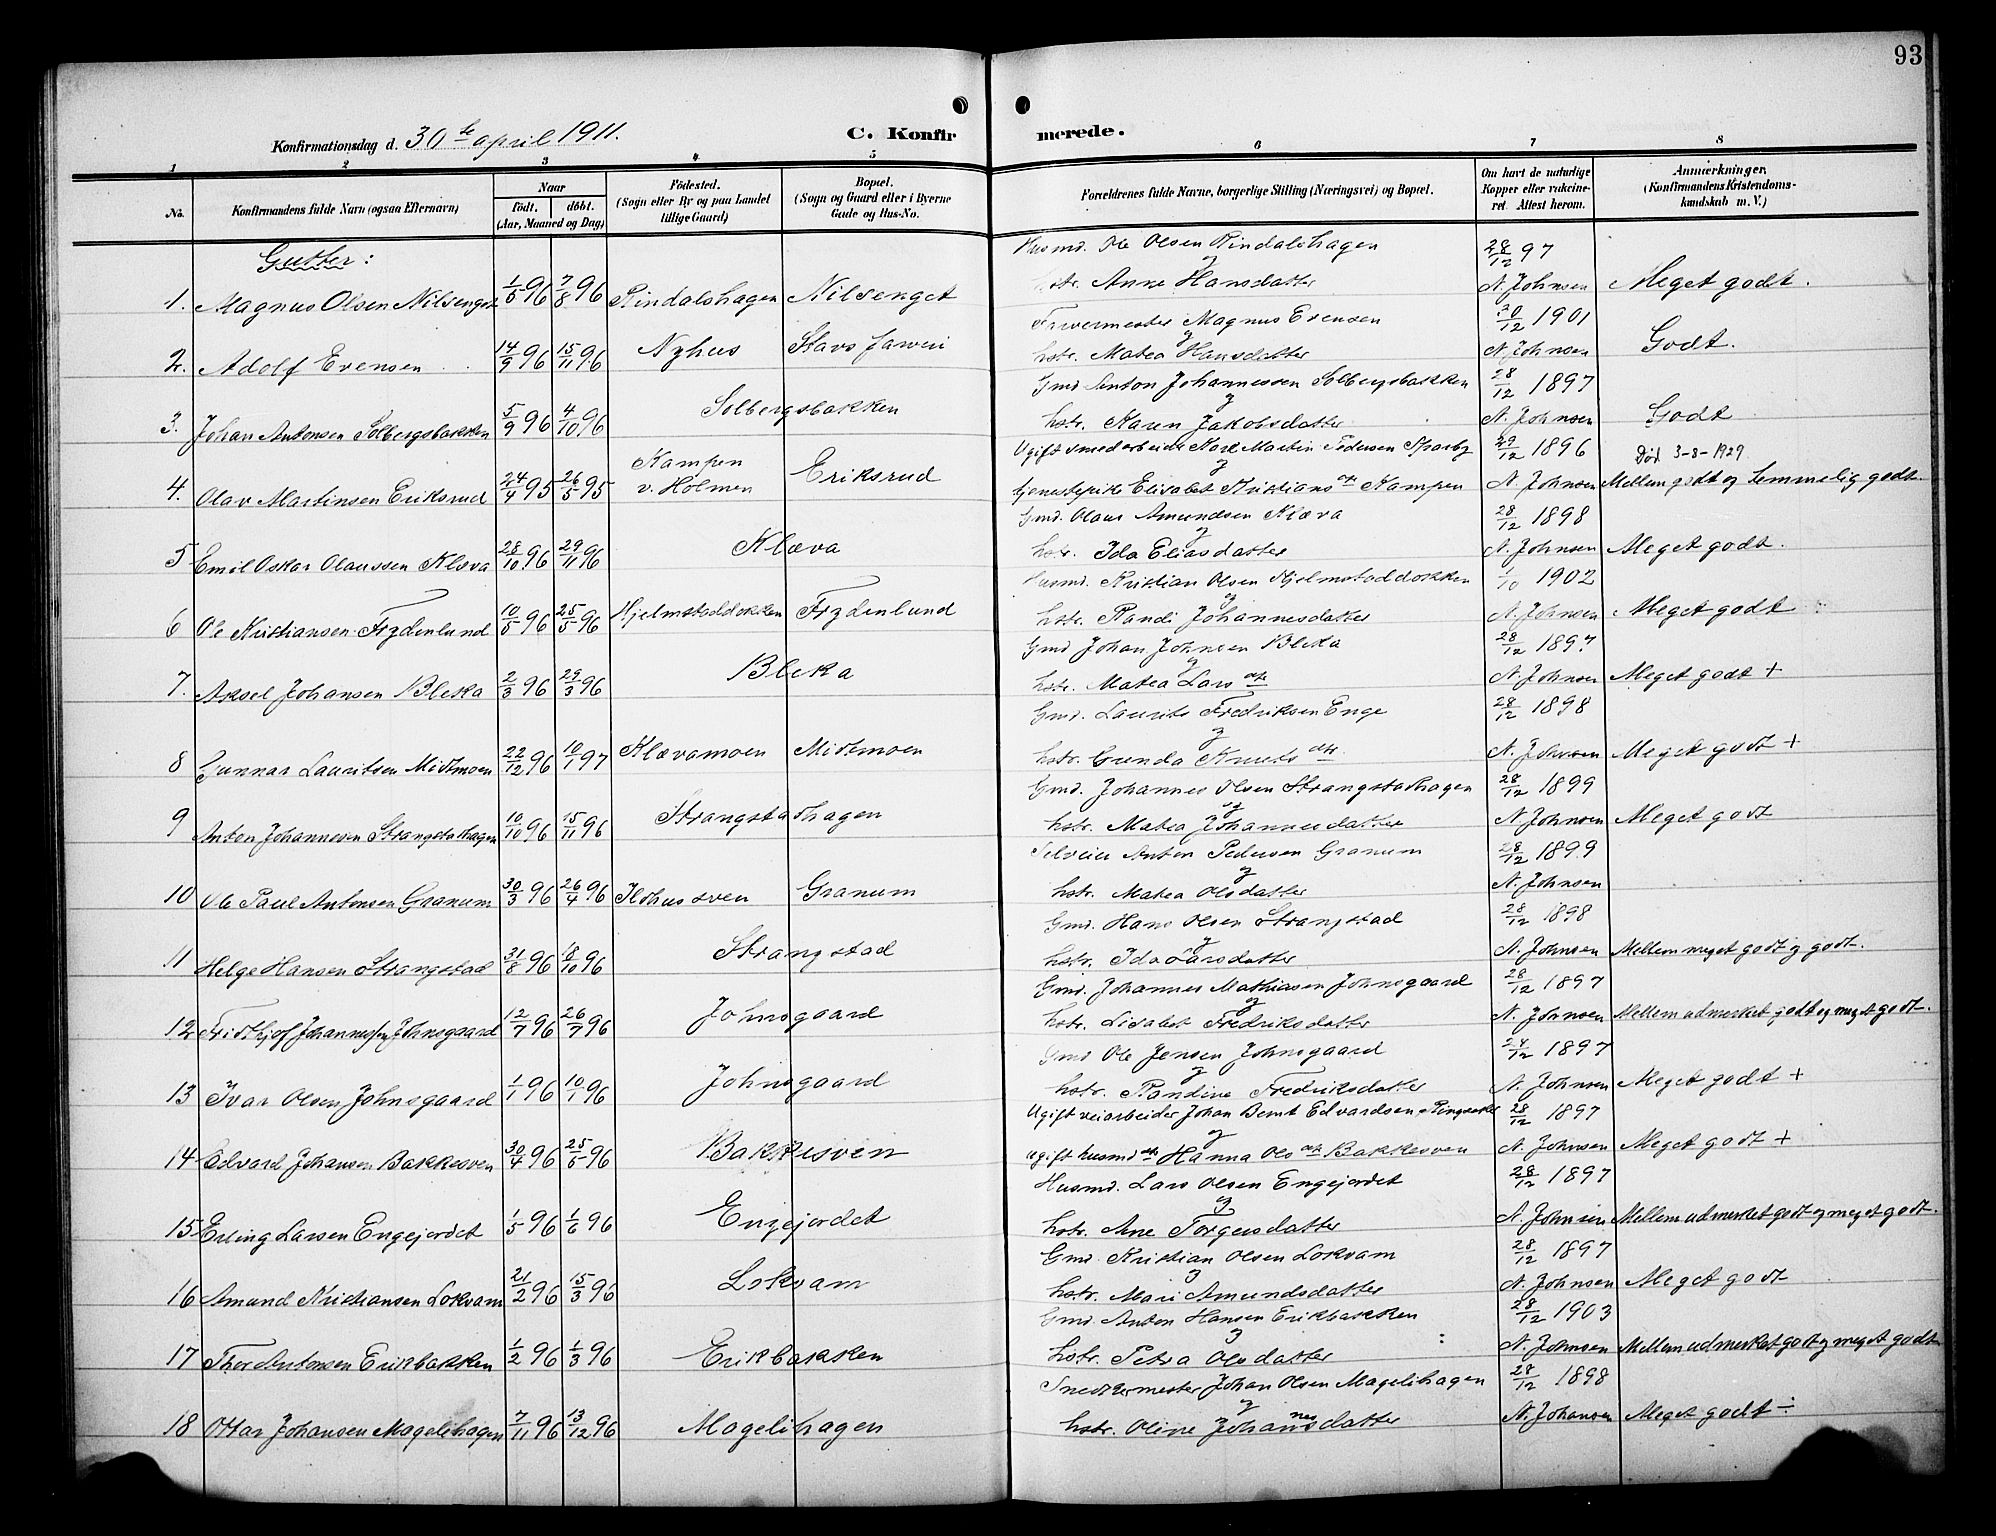 93
Konfirmationsdag d. 30te april 1911.
C. Konfirmerede.
1 2 3 4 5 6 7 8
No.
Konfirmandens fulde Navn (ogsaa Efternavn)
Naar
födt. döbt.
(Aar, Maaned og Dag)
Födested.
(Sogn eller By og paa Landet
tillige Gaard)
Bopæl.
(Sogn og Gaard eller i Byerne
Gade og Hus-No.
Forældrenes fulde Navne, borgerlige Stilling (Næringsvei) og Bopæl.
Om havt de naturlige
Kopper eller vakcine-
ret. Attest herom.
Anmærkninger.
(Konfirmandens Kristendoms-
kundskab m. V.)
Gutter:
Husmd. Ole Olsen Rindalshagen 28/12 97
og
1. Magnus Olsen Nilsenget 1/5 96 7/8 96 Rindalshagen Nilsenget hstr. Anne Hansdatter N. Johnsen Meget godt.
Farvermester Magnus Evensen 30/12 1901
og
2. Adolf Evensen 14/9 96 15/11 96 Nyhus Stavs farveri hstr. Matea Hansdatter N. Johnsen Godt.
Gmd Anton Johannessen Solbergsbakken 28/12 1897
og
3. Johan Antonsen Solbergsbakken 5/9 96 4/10 96 Solbergsbakken hstr. Karen Jakobsdatter N. Johnsen Godt
Ugift smedarbeider Karl Martin Pedersen Sparby 29/12 1896 Död 3-8-1929
og
4. Olav Martinsen Eriksrud 24/4 95 26/5 95 Kampen v. Holmen Eriksrud tjenestepike Elisabet Kristiansdtr Kampen N. Johnsen Mellem godt og temmelig godt.
Gmd. Olaus Amundsen Klæva 28/12 1898
og
5 Emil Oskar Olaussen Klæva 28/10 96 29/11 96 Klæva hstr. Ida Eliasdatter N. Johnsen Meget godt.
Husmd. Kristian Olsen Hjelmstaddokken 1/10 1902
og
6 Ole Kristiansen Frydenlund 10/5 96 25/5 96 Hjelmstaddokken Frydenlund hstr. Randi Johannesdatter N. Johnsen Meget godt
Gmd Johan Johnsen Bleka 28/12 1897
og
7. Aksel Johansen Bleka 2/3 96 29/3 96 Bleka hstr. Matea Larsdtr N. Johnsen Meget godt +
Gmd. Laurits Fredriksen Enge 28/12 1898
og
8 Gunnar Lauritsen Midtmoen 22/12 96 10/1 97 Klævamoen Midtmoen hstr. Gunda Knutsdtr. N. Johnsen Meget godt +
Gmd. Johannes Olsen Strangstadhagen 28/12 1899
og
9 Anton Johannesen Strangstadhagen 10/10 96 15/11 96 Strangstadhagen hstr. Matea Johannesdatter N. Johnsen Meget godt
Selveier Anton Pedersen Granum 28/12 1899
og
10 Ole Paul Antonsen Granum 30/3 96 26/4 96 Ildhussven Granum hstr. Matea Olsdatter N. Johnsen
Gmd. Hans Olsen Strangstad 28/12 1898
og
11 Helge Hansen Strangstad 31/8 96 18/10 96 Strangstad hstr. Ida Larsdatter N. Johnsen Mellem meget godt og godt.
Gmd. Johannes Mathiasen Johnsgaard 28/12 1897
og
12 Fridthjof Johannessen Johnsgaard 12/7 96 26/7 96 Johnsgaard hstr. Lisabet Fredriksdatter N. Johnsen Mellem udmerket godt og meget godt.
Gmd Ole Jensen Johnsgaard 24/12 1897
og
13 Ivar Olsen Johnsgaard 1/1 96 10/1 96 Johnsgaard hstr. Randine Fredriksdatter N. Johnsen Meget godt +
Ugift veiarbeider Johan Bernt Edvardsen Ringsaker 28/12 1897
og
14 Edvard Johansen Bakkesven 30/4 96 25/5 96 Bakkesven ugift husmd.dtr. Hanna Olsdtr Bakkesven N. Johnsen Meget godt +
Husmd. Lars Olsen Engejordet 28/12 1897
og
15 Erling Larsen Engejordet 1/5 96 1/6 96 Engejordet hstr. Ane Torgersdatter N. Johnsen Mellem udmerket godt og meget godt.
Gmd. Kristian Olsen Lokvam 28/12 1897
og
16 Amund Kristiansen Lokvam 21/2 96 15/3 96 Lokvam hstr. Mari Amundsdatter N. Johnsen Meget godt
Gmd. Anton Hansen Erikbakken 28/12 1903
og
17 Thor Antonsen Erikbakken 1/2 96 1/3 96 Erikbakken hstr. Petra Olsdatter N. Johnsen Mellem udmerket godt og meget godt
Snedkermester Johan Olsen Magelihagen 28/12 1898
og
18 Ottar Johansen Magelihagen 7/11 96 13/12 96 Magelihagen hstr. Oline Johannesdatter N. Johansen Meget godt ÷